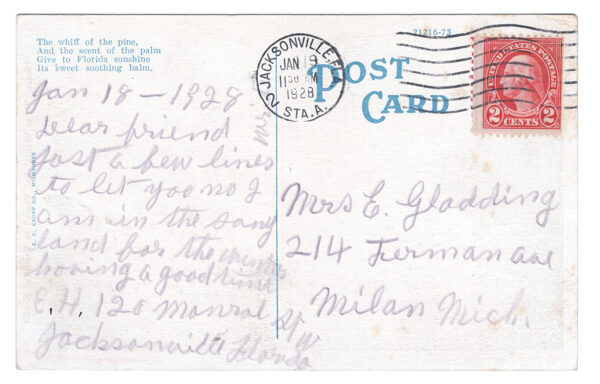 The whiff of the pine,
And the scent of the palm
Give to Florida sunshine
Its sweet soothing balm.
21216-73
JACKSONVILLE, FLA.
JAN 19
1130 AM
1928
STA. A.
2
POST
CARD
UNITED STATES POSTAGE
2 CENTS 2
E. C. KROPP CO., MILWAUKEE
Jan 18 - 1928
Dear friend
Just a few lines
to let you no I
am in the sany
land for the winter
having a good time
E. H. 120 Monrol
St W
Jacksonville Florida
Mrs E. Gladding
214 Ferman ave
Milan Mich.